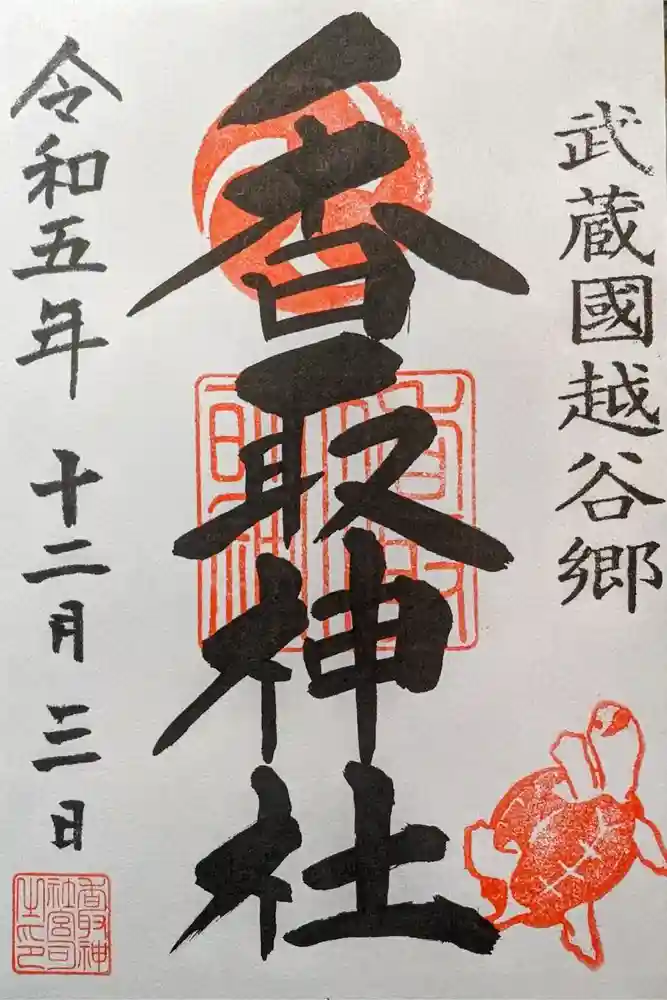 武蔵國越谷郷
香取神社
令和五年 十二月 三日
香取神
社宮司
之印